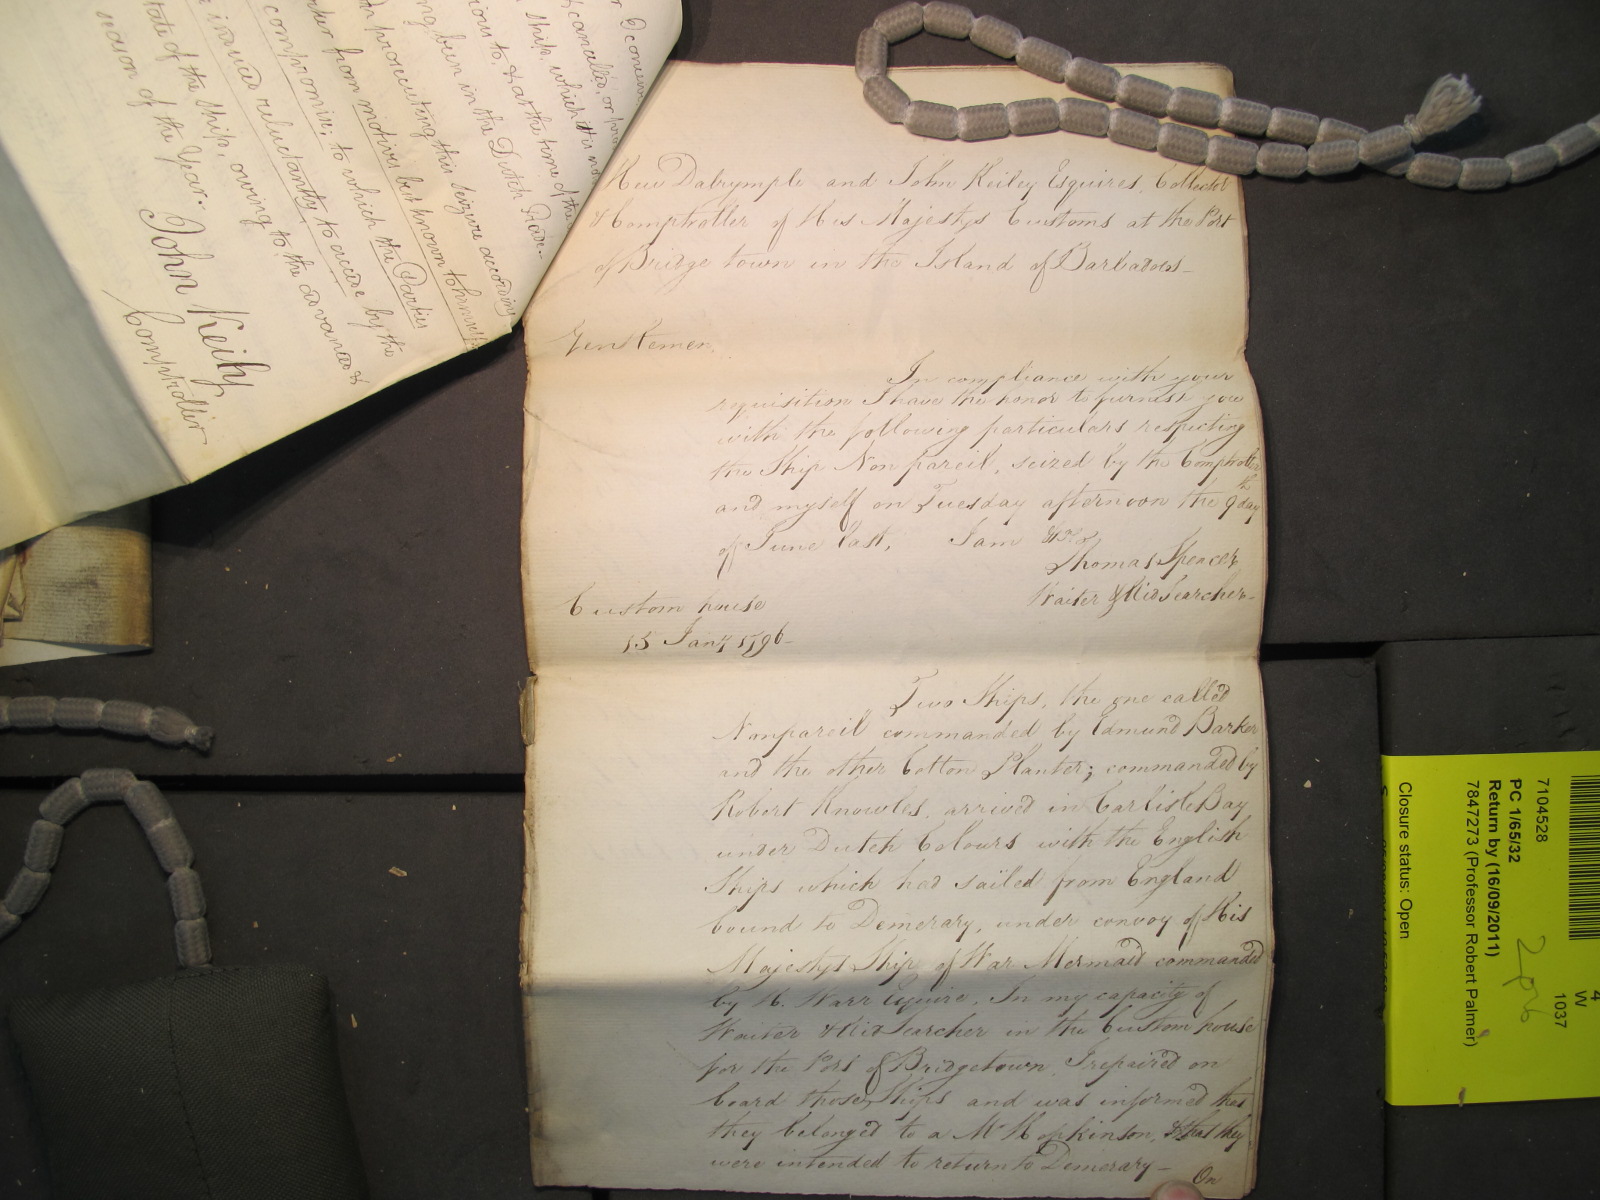 Hew Dalrymple and John Keiley Esquires, Collector
& Comptroller of His Majestys Customs at the Port
of Bridge town in the Island of Barbadoes—
Gentlemen,
In compliance with your
requisition I have the honor to furnish you
with the following particulars respecting
the Ship Nonpareil, seized by the Comptroller
and myself on Tuesday afternoon the 9th day
of June last, I am &c.
Thomas Spencer
Waiter & Searcher—
Custom house
15 Jany 1796—
Two Ships, the one called
Nonpareil commanded by Edmund Barker
and the other Cotton Planter; commanded by
Robert Knowles, arrived in Carlisle Bay
under Dutch Colours with the English
Ships which had sailed from England
bound to Demerary, under convoy of His
Majestys Ship of War Mermaid commanded
by H. Warr Esquire. In my capacity of
Waiter & Searcher in the Custom house
for the Port of Bridgetown I repaired on
board those Ships and was informed that
they belonged to a Mr Hopkinson, & that they
were intended to return to Demerary—
On
cancelled, or
Ship, which it is
to, & at the time of the
been in the Dutch Trade..
prosecuting this seizure according
from motives best known to himself
compromise; to which the Parties
issued reluctantly to accede by the
state of the ship, owing to the advanced
season of the Year..
John Keily
Comptroller
7104528
PC 1/65/32
Return by (16/09/2011)
7847273 (Professor Robert Palmer)
Closure status: Open
4
W
1037